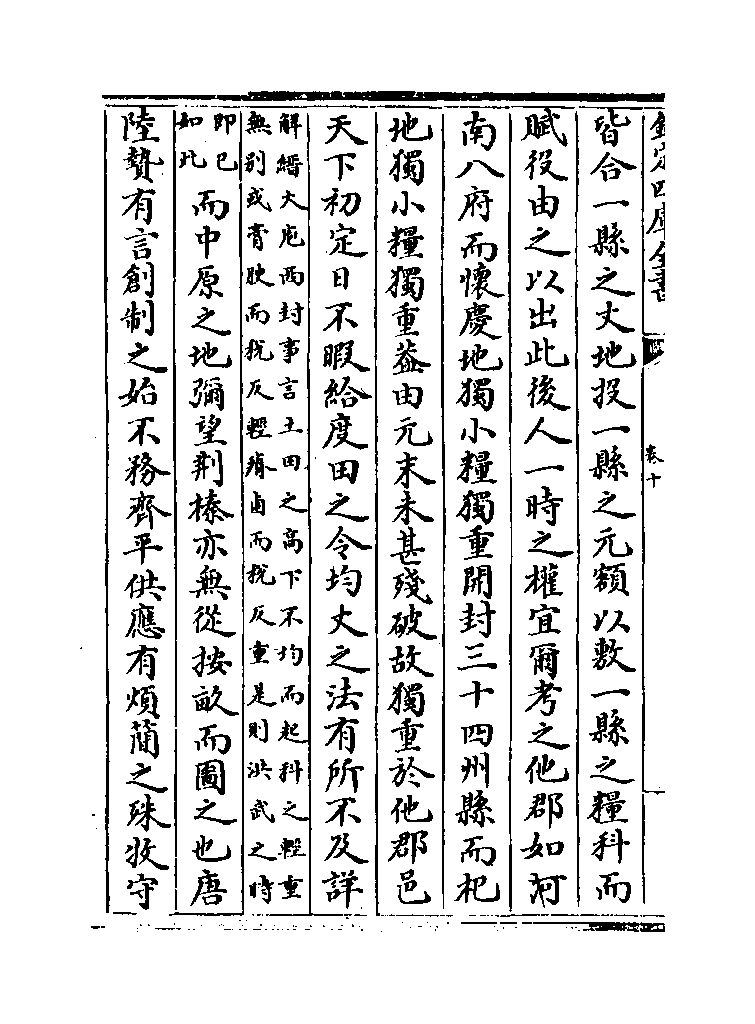 欽定四庫全書
卷十
皆合一縣之丈地投一縣之元額以敷一縣之糧科而
賦役由之以出此後人一時之權宜爾考之他郡如河
南八府而懷慶地獨小糧獨重開封三十四州縣而杞
地獨小糧獨重蓋由元末未甚殘破故獨重於他郡邑
天下初定日不暇給度田之令均丈之法有所不及詳
解縉大庖西封事言土田之高下不均而起科之輕重
無别或膏腴而税反輕瘠鹵而税反重是則洪武之時
即已
如此
而中原之地彌望荆榛亦無從按畝而圖之也唐
陸贄有言創制之始不務齊平供應有煩簡之殊牧守